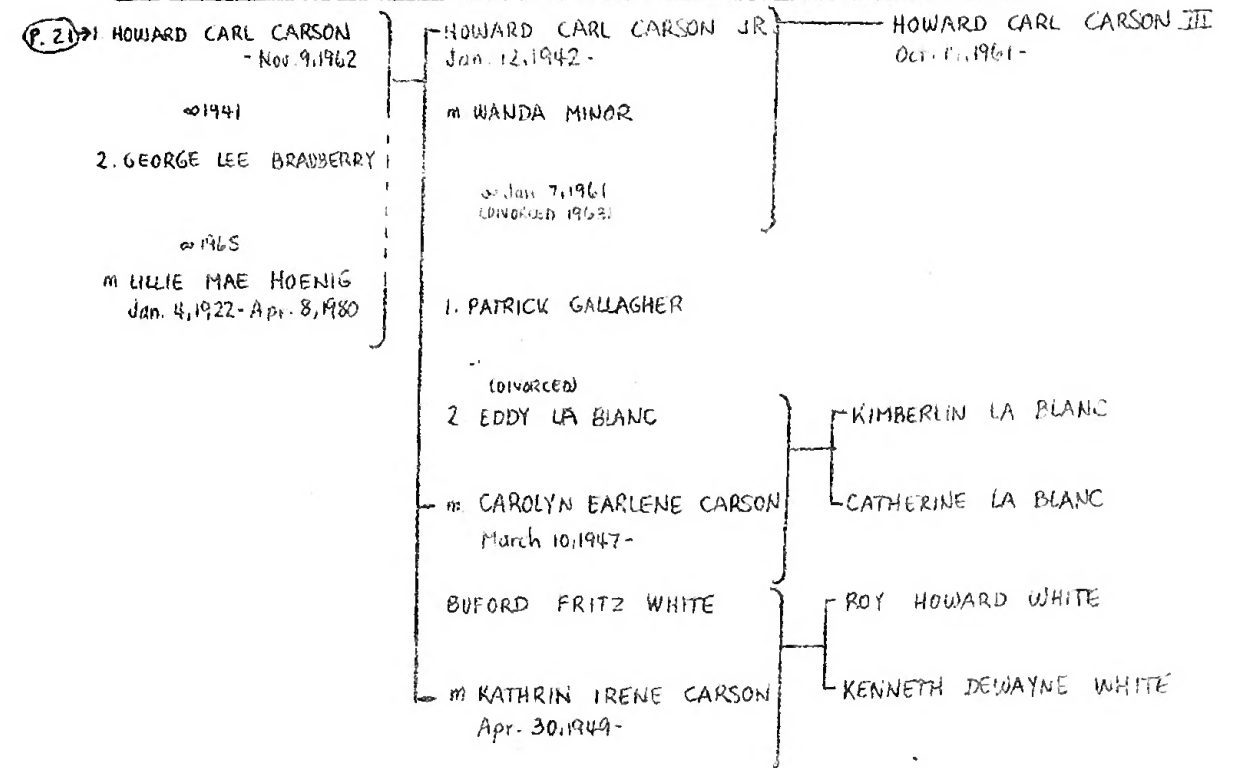 P. 21 → 1. HOWARD CARL CARSON
- Nov. 9, 1962
∞ 1941
2. GEORGE LEE BRADBERRY
∞ 1965
m LILLIE MAE HOENIG
Jan. 4, 1922 - Apr. 8, 1980
HOWARD CARL CARSON JR.
Jan. 12, 1942 -
m WANDA MINOR
∞ Jan 7, 1961
(DIVORCED 1963)
1. PATRICK GALLAGHER
(DIVORCED)
2 EDDY LA BLANC
m. CAROLYN EARLENE CARSON
March 10, 1947 -
BUFORD FRITZ WHITE
m KATHRIN IRENE CARSON
Apr. 30, 1949 -
HOWARD CARL CARSON III
Oct. 1961 -
KIMBERLIN LA BLANC
CATHERINE LA BLANC
ROY HOWARD WHITE
KENNETH DEWAYNE WHITE